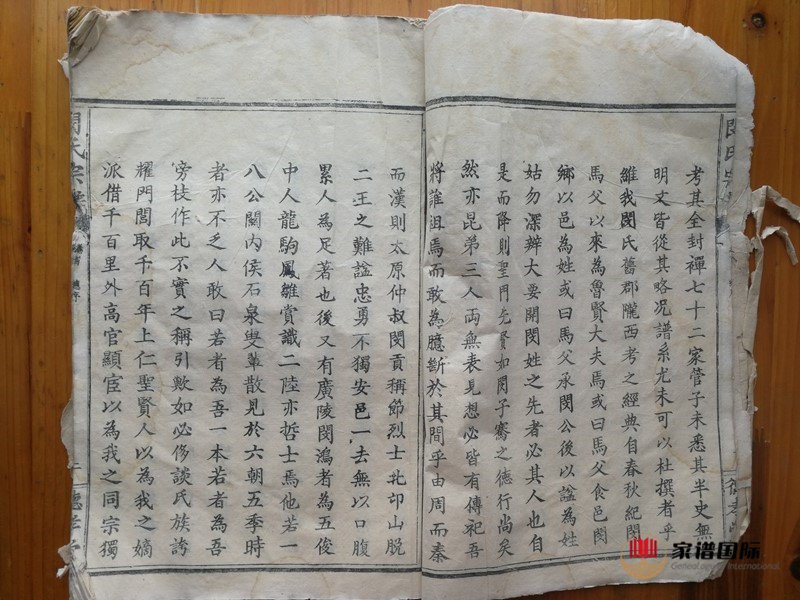 考其全封禪七十二家管子未悉其半史無
明文皆從其略况譜系尤未可以杜撰者乎
維我閔氏舊郡隴西考之經典自春秋紀閔
馬父以來為魯賢大夫焉或曰馬父食邑閔
鄉以邑為姓或曰馬父承閔公後以諡為姓
姑勿深辨大要開閔姓之先者必其人也自
是而降則聖門先賢如閔子騫之德行尚矣
然亦昆弟三人兩無表見想必皆有傳祀吾
將誰祖焉而敢為臆斷於其間乎由周而秦
而漢則太原仲叔閔貢稱節烈士北邙山脫
二王之難諡忠勇不獨安邑一去無以口腹
累人為足著也後又有廣陵閔鴻者為五俊
中人龍駒鳳雛賞識二陸亦哲士焉他若一
八公關內侯石泉叟輩散見於六朝五季時
者亦不乏人敢曰若者為吾一本若者為吾
旁枝作此不實之稱引數如必侈談氏族誇
耀門閭取千百年上仁聖賢人以為我之嫡
派借千百里外高官顯宦以為我之同宗獨
閔氏宗
德孝堂
家谱国际
Genealogy International